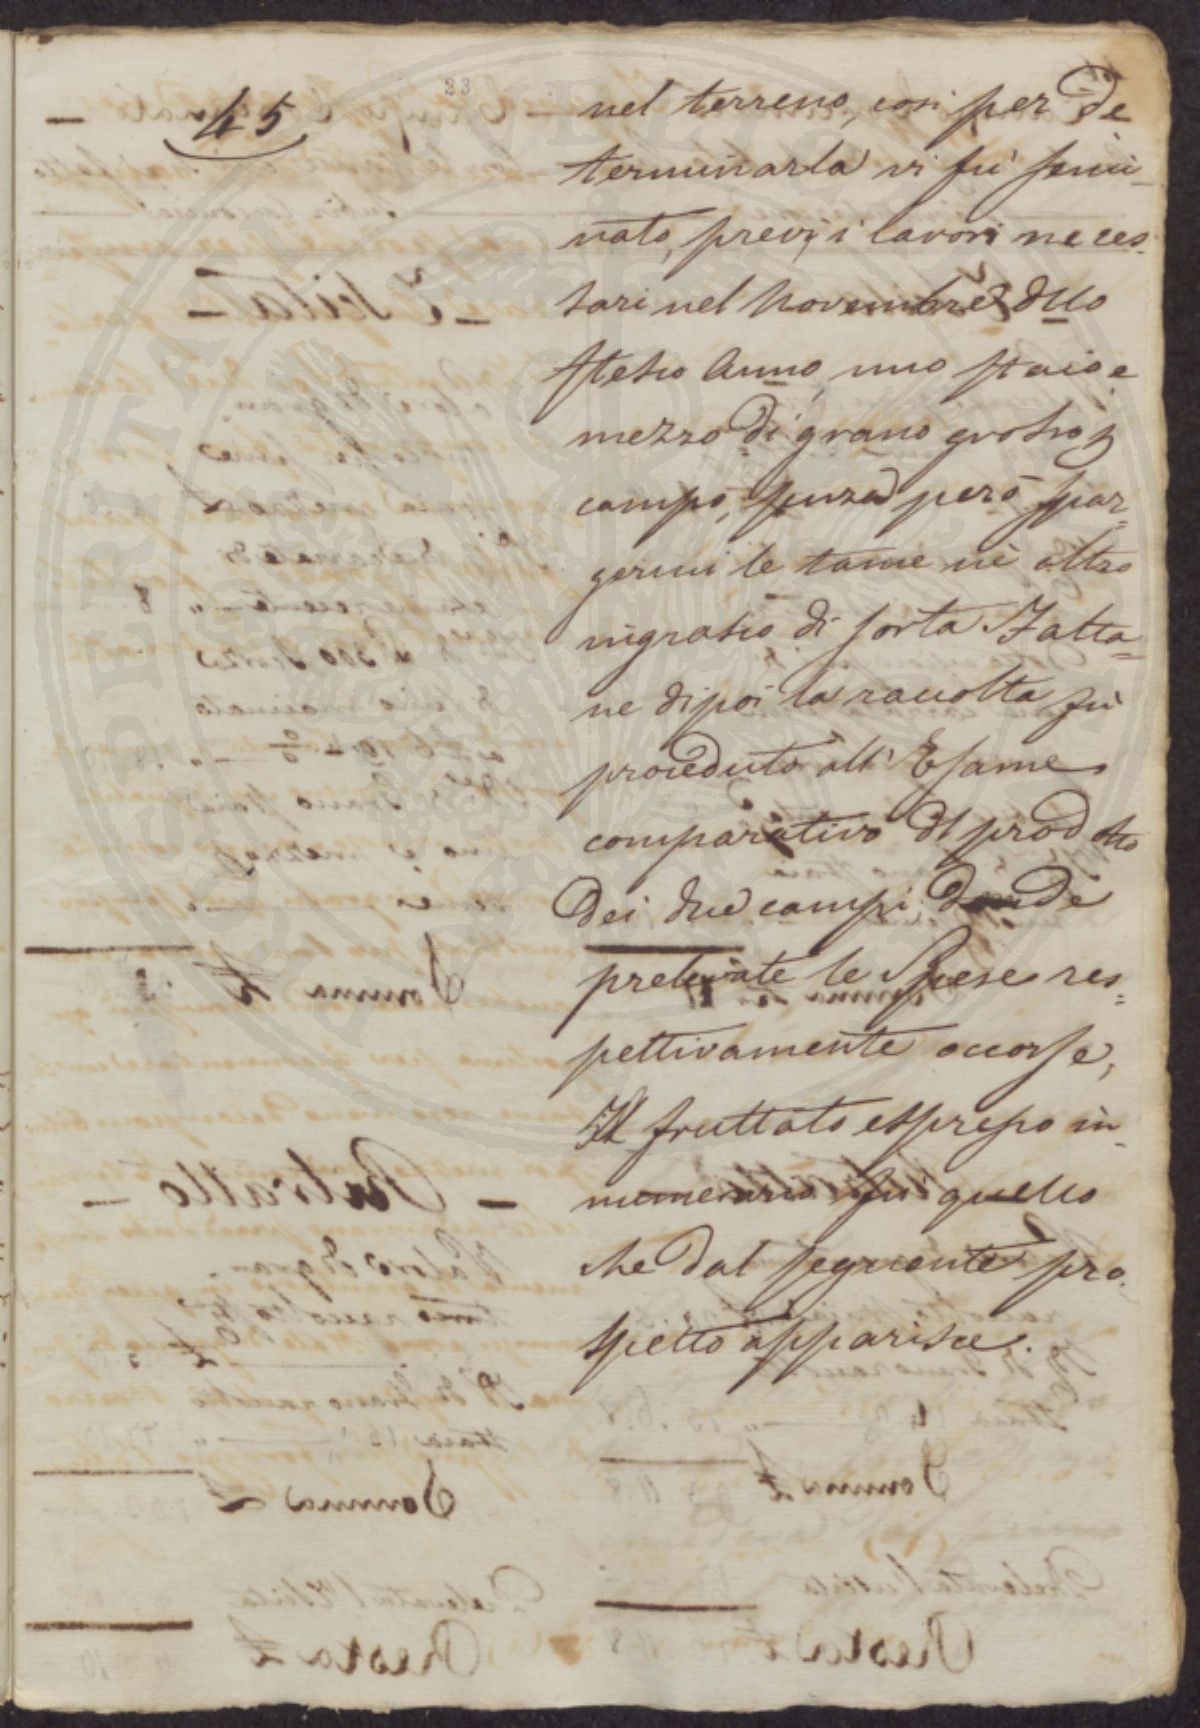 23
45
nel terreno, così per de
terminarla vi fù semi-
nato, previ, i lavori neces-
sari nel Novembre dello
stesso Anno, uno staio e
mezzo di grano grosso
campo, senza però spar-
germi le tame nè altro
ingrasso di sorta. Fatta-
ne dipoi la raccolta fù
proceduto all' Esame
comparativo del prodotto
Dei due campi donde
prelevate le Spese res-
pettivamente occorse,
Il fruttato espresso in
numerario fù quello
che dal seguente pro-
spetto apparisce.